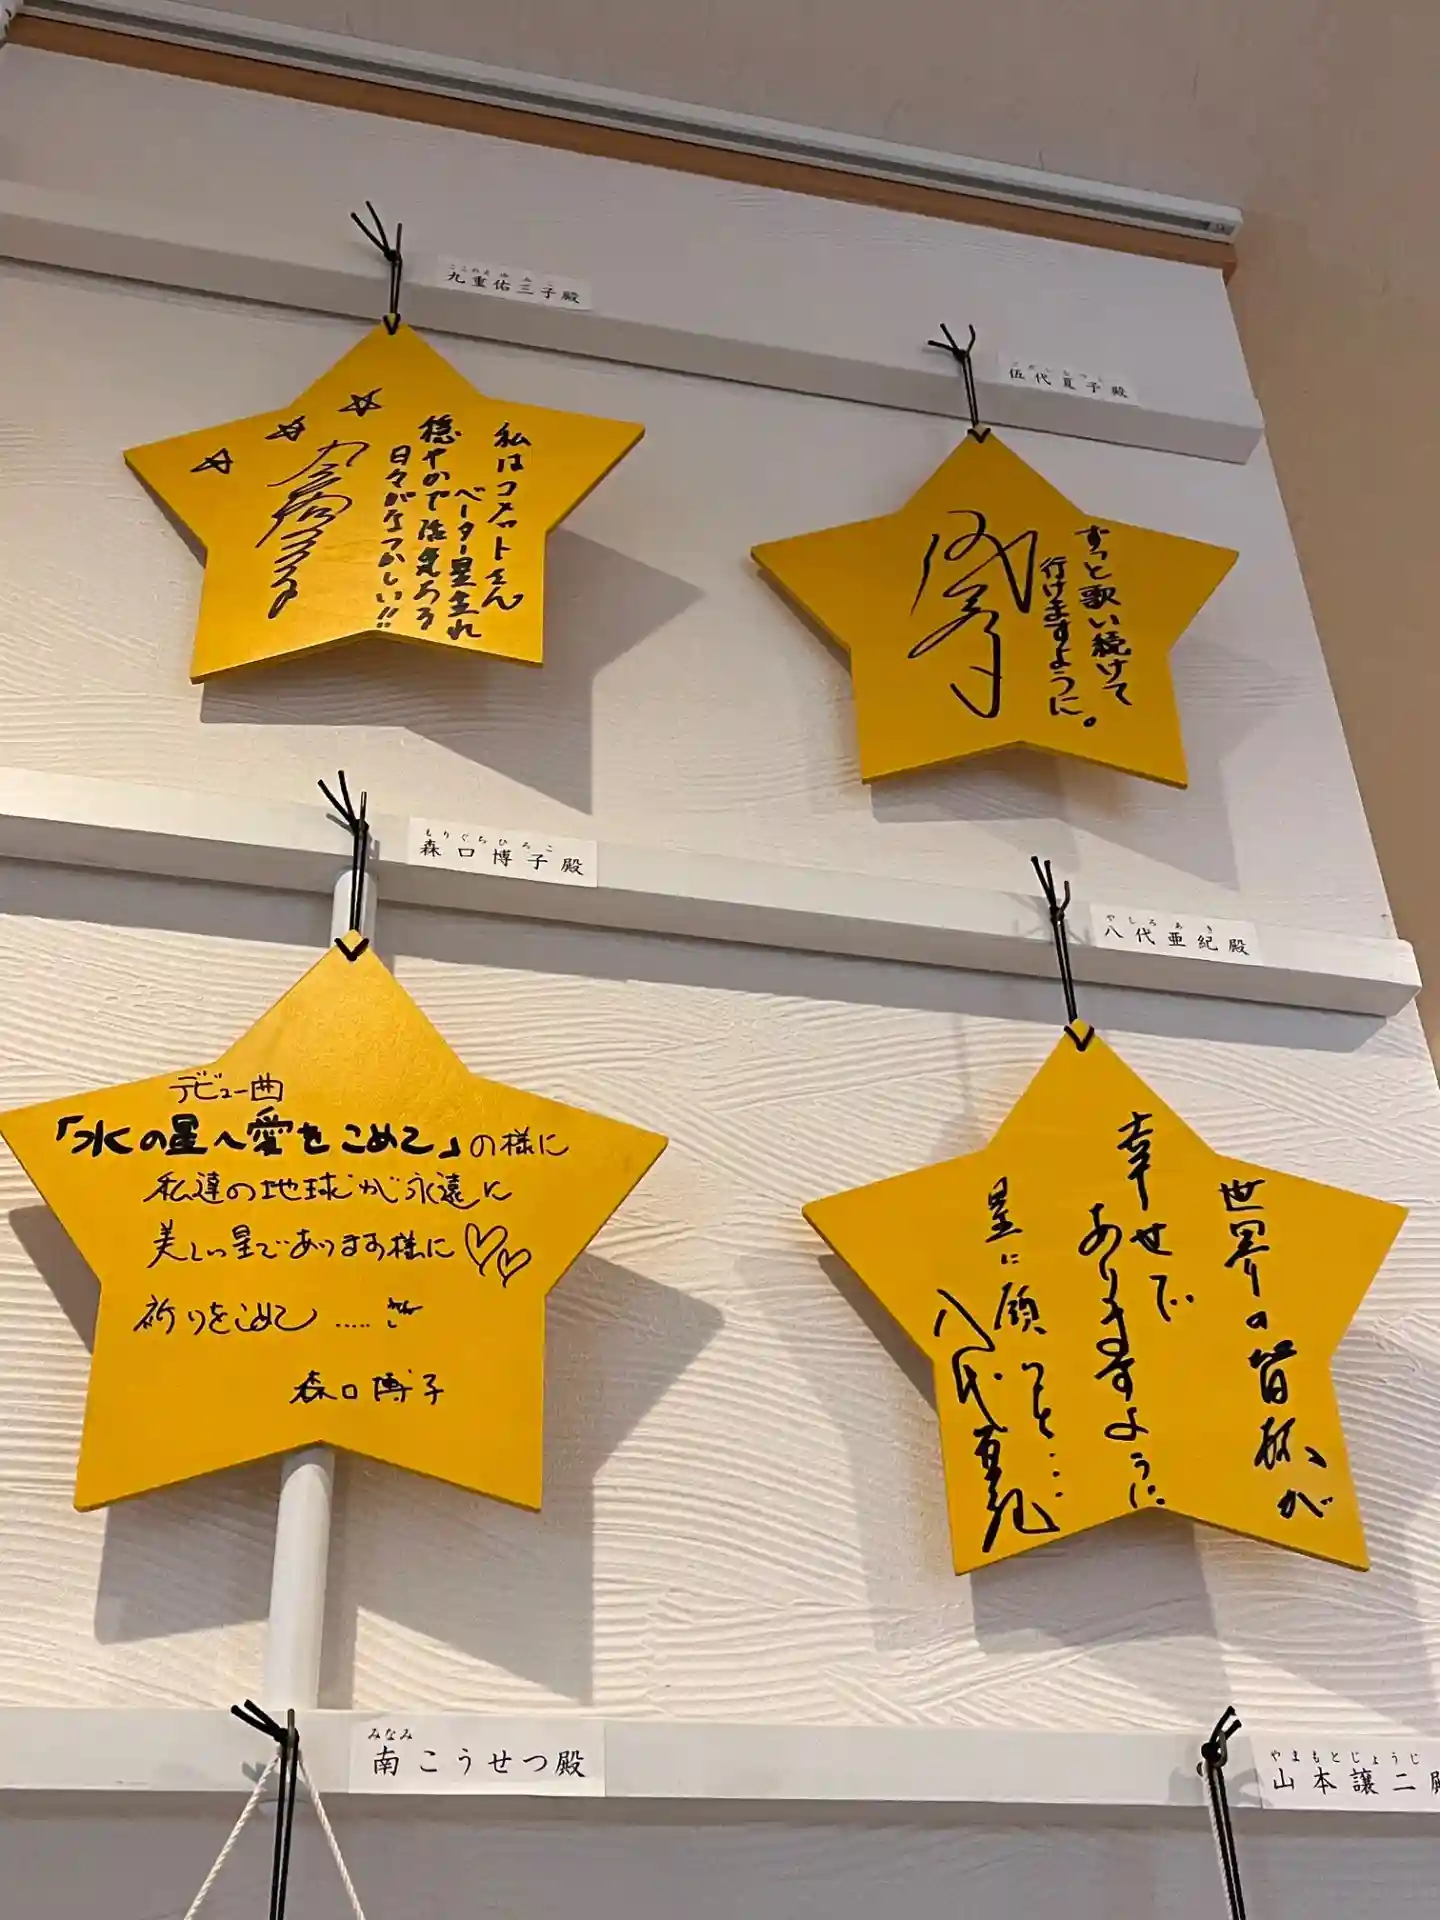 ここのえ ゆみこ
九重佑三子殿
私はコメットさん
ベーター星生れ
穏やかで陽気なる
日々がなつかしい!!
伍代夏子殿
ずっと歌い続けて
行けますように。
もりぐちひろこ
森口博子殿
デビュー曲
「水の星へ愛をこめて」の様に
私達の地球が永遠に
美しい星であります様に
祈りをこめて……
森口博子
やしろあき
八代亜紀殿
世界の皆様が
幸せで
ありますように
星に願いを…
八代亜紀
みなみ
南こうせつ殿
やまもとじょうじ
山本譲二殿